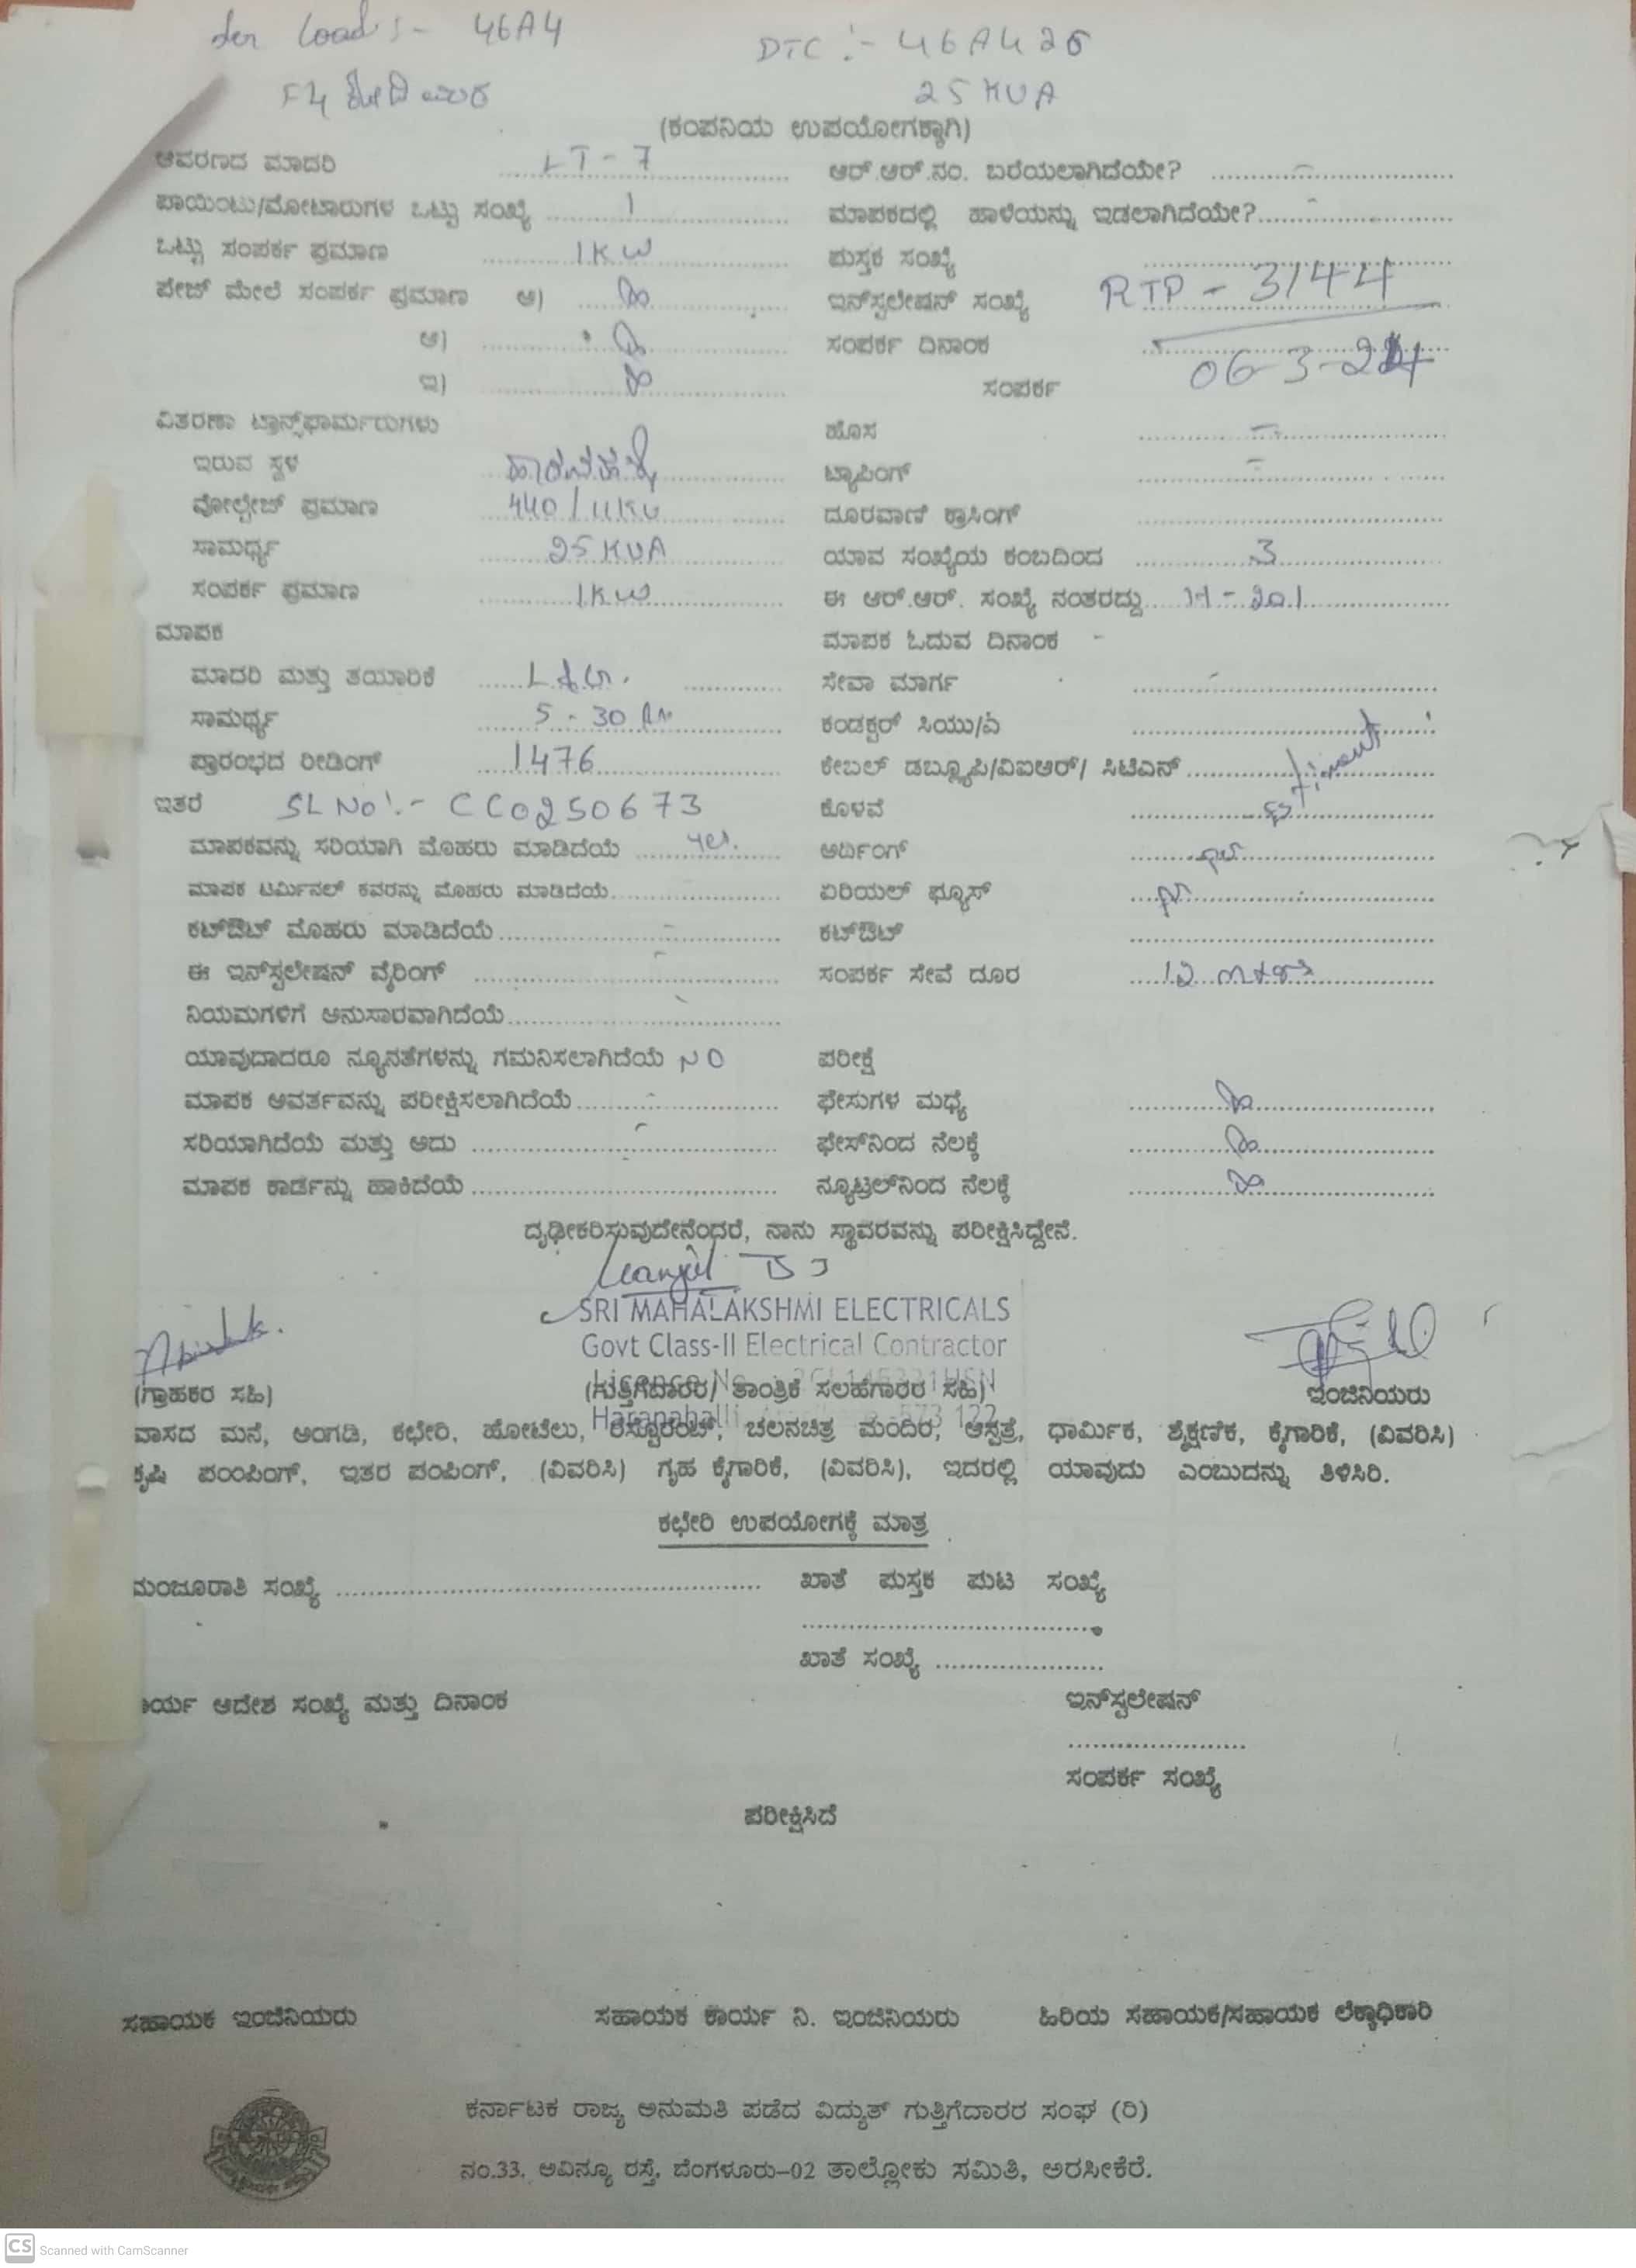 Load :- 46A4
DTC :- 46A426
F4
25 KVA
(ಕಂಪನಿಯ ಉಪಯೋಗಕ್ಕಾಗಿ)
ಆವರಣದ ಮಾದರಿ LT - 7
ಆರ್.ಆರ್.ನಂ. ಬರೆಯಲಾಗಿದೆಯೇ? -
ಪಾಯಿಂಟು/ಮೋಟಾರುಗಳ ಒಟ್ಟು ಸಂಖ್ಯೆ 1
ಮಾಪಕದಲ್ಲಿ ಹಾಳೆಯನ್ನು ಇಡಲಾಗಿದೆಯೇ? -
ಒಟ್ಟು ಸಂಪರ್ಕ ಪ್ರಮಾಣ 1KW
ಪುಸ್ತಕ ಸಂಖ್ಯೆ
ಪೇಜ್ ಮೇಲೆ ಸಂಪರ್ಕ ಪ್ರಮಾಣ ಅ)
ಇನ್‌ಸ್ಟಲೇಷನ್ ಸಂಖ್ಯೆ RTP - 3144
ಆ)
ಸಂಪರ್ಕ ದಿನಾಂಕ 06-3-24
ಇ)
ಸಂಪರ್ಕ
ವಿತರಣಾ ಟ್ರಾನ್ಸ್‌ಫಾರ್ಮರುಗಳು
ಹೊಸ -
ಇರುವ ಸ್ಥಳ
ಟ್ಯಾಪಿಂಗ್ -
ವೋಲ್ಟೇಜ್ ಪ್ರಮಾಣ 440/11KV
ದೂರವಾಣಿ ಕ್ರಾಸಿಂಗ್
ಸಾಮರ್ಥ್ಯ 25 KVA
ಯಾವ ಸಂಖ್ಯೆಯ ಕಂಬದಿಂದ 3
ಸಂಪರ್ಕ ಪ್ರಮಾಣ 1KW
ಈ ಆರ್.ಆರ್. ಸಂಖ್ಯೆ ನಂತರದ್ದು
ಮಾಪಕ
ಮಾಪಕ ಓದುವ ದಿನಾಂಕ -
ಮಾದರಿ ಮತ್ತು ತಯಾರಿಕೆ
ಸೇವಾ ಮಾರ್ಗ
ಸಾಮರ್ಥ್ಯ 5 - 30
ಕಂಡಕ್ಟರ್ ಸಿಯು/ಎ
ಪ್ರಾರಂಭದ ರೀಡಿಂಗ್ 1476
ಕೇಬಲ್ ಡಬ್ಲ್ಯೂಪಿ/ವಿಐಆರ್/ ಸಿಟಿಎಸ್
ಇತರೆ SL No:- CC0250673
ಕೊಳವೆ
ಮಾಪಕವನ್ನು ಸರಿಯಾಗಿ ಮೊಹರು ಮಾಡಿದೆಯೆ yes.
ಅರ್ಥಿಂಗ್
ಮಾಪಕ ಟರ್ಮಿನಲ್ ಕವರನ್ನು ಮೊಹರು ಮಾಡಿದೆಯೆ
ಏರಿಯಲ್ ಫ್ಯೂಸ್
ಕಟ್‌ಔಟ್ ಮೊಹರು ಮಾಡಿದೆಯೆ -
ಕಟ್‌ಔಟ್
ಈ ಇನ್‌ಸ್ಟಲೇಷನ್ ವೈರಿಂಗ್ -
ಸಂಪರ್ಕ ಸೇವೆ ದೂರ 12
ನಿಯಮಗಳಿಗೆ ಅನುಸಾರವಾಗಿದೆಯೆ
ಯಾವುದಾದರೂ ನ್ಯೂನತೆಗಳನ್ನು ಗಮನಿಸಲಾಗಿದೆಯೆ NO
ಪರೀಕ್ಷೆ
ಮಾಪಕ ಆವರ್ತವನ್ನು ಪರೀಕ್ಷಿಸಲಾಗಿದೆಯೆ -
ಫೇಸುಗಳ ಮಧ್ಯೆ
ಸರಿಯಾಗಿದೆಯೆ ಮತ್ತು ಅದು
ಫೇಸ್‌ನಿಂದ ನೆಲಕ್ಕೆ
ಮಾಪಕ ಕಾರ್ಡನ್ನು ಹಾಕಿದೆಯೆ
ನ್ಯೂಟ್ರಲ್‌ನಿಂದ ನೆಲಕ್ಕೆ
ದೃಢೀಕರಿಸುವುದೇನೆಂದರೆ, ನಾನು ಸ್ಥಾವರವನ್ನು ಪರೀಕ್ಷಿಸಿದ್ದೇನೆ.
SRI MAHALAKSHMI ELECTRICALS
Govt Class-II Electrical Contractor
(ಗ್ರಾಹಕರ ಸಹಿ)
(ಗುತ್ತಿಗೆದಾರರ/ ತಾಂತ್ರಿಕೆ ಸಲಹೆಗಾರರ ಸಹಿ)
ಇಂಜಿನಿಯರು
ವಾಸದ ಮನೆ, ಅಂಗಡಿ, ಕಛೇರಿ, ಹೋಟೆಲು, ರೆಸ್ಟೂರೆಂಟ್, ಚಲನಚಿತ್ರ ಮಂದಿರ, ಆಸ್ಪತ್ರೆ, ಧಾರ್ಮಿಕ, ಶೈಕ್ಷಣಿಕ, ಕೈಗಾರಿಕೆ, (ವಿವರಿಸಿ)
ಕೃಷಿ ಪಂಂಪಿಂಗ್, ಇತರ ಪಂಪಿಂಗ್, (ವಿವರಿಸಿ) ಗೃಹ ಕೈಗಾರಿಕೆ, (ವಿವರಿಸಿ), ಇದರಲ್ಲಿ ಯಾವುದು ಎಂಬುದನ್ನು ತಿಳಿಸಿರಿ.
ಕಛೇರಿ ಉಪಯೋಗಕ್ಕೆ ಮಾತ್ರ
ಮಂಜೂರಾತಿ ಸಂಖ್ಯೆ
ಖಾತೆ ಪುಸ್ತಕ ಪುಟ ಸಂಖ್ಯೆ
ಖಾತೆ ಸಂಖ್ಯೆ
ಆದೇಶ ಸಂಖ್ಯೆ ಮತ್ತು ದಿನಾಂಕ
ಇನ್‌ಸ್ಟಲೇಷನ್
ಸಂಪರ್ಕ ಸಂಖ್ಯೆ
ಪರೀಕ್ಷಿಸಿದೆ
ಸಹಾಯಕ ಇಂಜಿನಿಯರು
ಸಹಾಯಕ ಕಾರ್ಯ ನಿ. ಇಂಜಿನಿಯರು
ಹಿರಿಯ ಸಹಾಯಕ/ಸಹಾಯಕ ಲೆಕ್ಕಾಧಿಕಾರಿ
ಕರ್ನಾಟಕ ರಾಜ್ಯ ಅನುಮತಿ ಪಡೆದ ವಿದ್ಯುತ್ ಗುತ್ತಿಗೆದಾರರ ಸಂಘ (ರಿ)
ನಂ.33, ಅವಿನ್ಯೂ ರಸ್ತೆ, ಬೆಂಗಳೂರು-02 ತಾಲ್ಲೋಕು ಸಮಿತಿ, ಅರಸೀಕೆರೆ.
CS Scanned with CamScanner